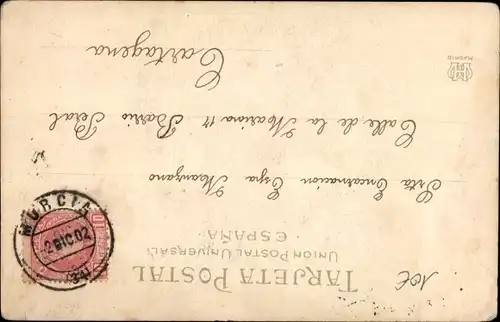 TARJETA POSTAL
UNION POSTAL UNIVERSAL
· ESPAÑA ·
Srta Encarnacion Espa Manzano
Calle de la Marina 17 Barrio Peral
Cartagena
MADRID
MURCIA
2 DIC. 02
10
10€